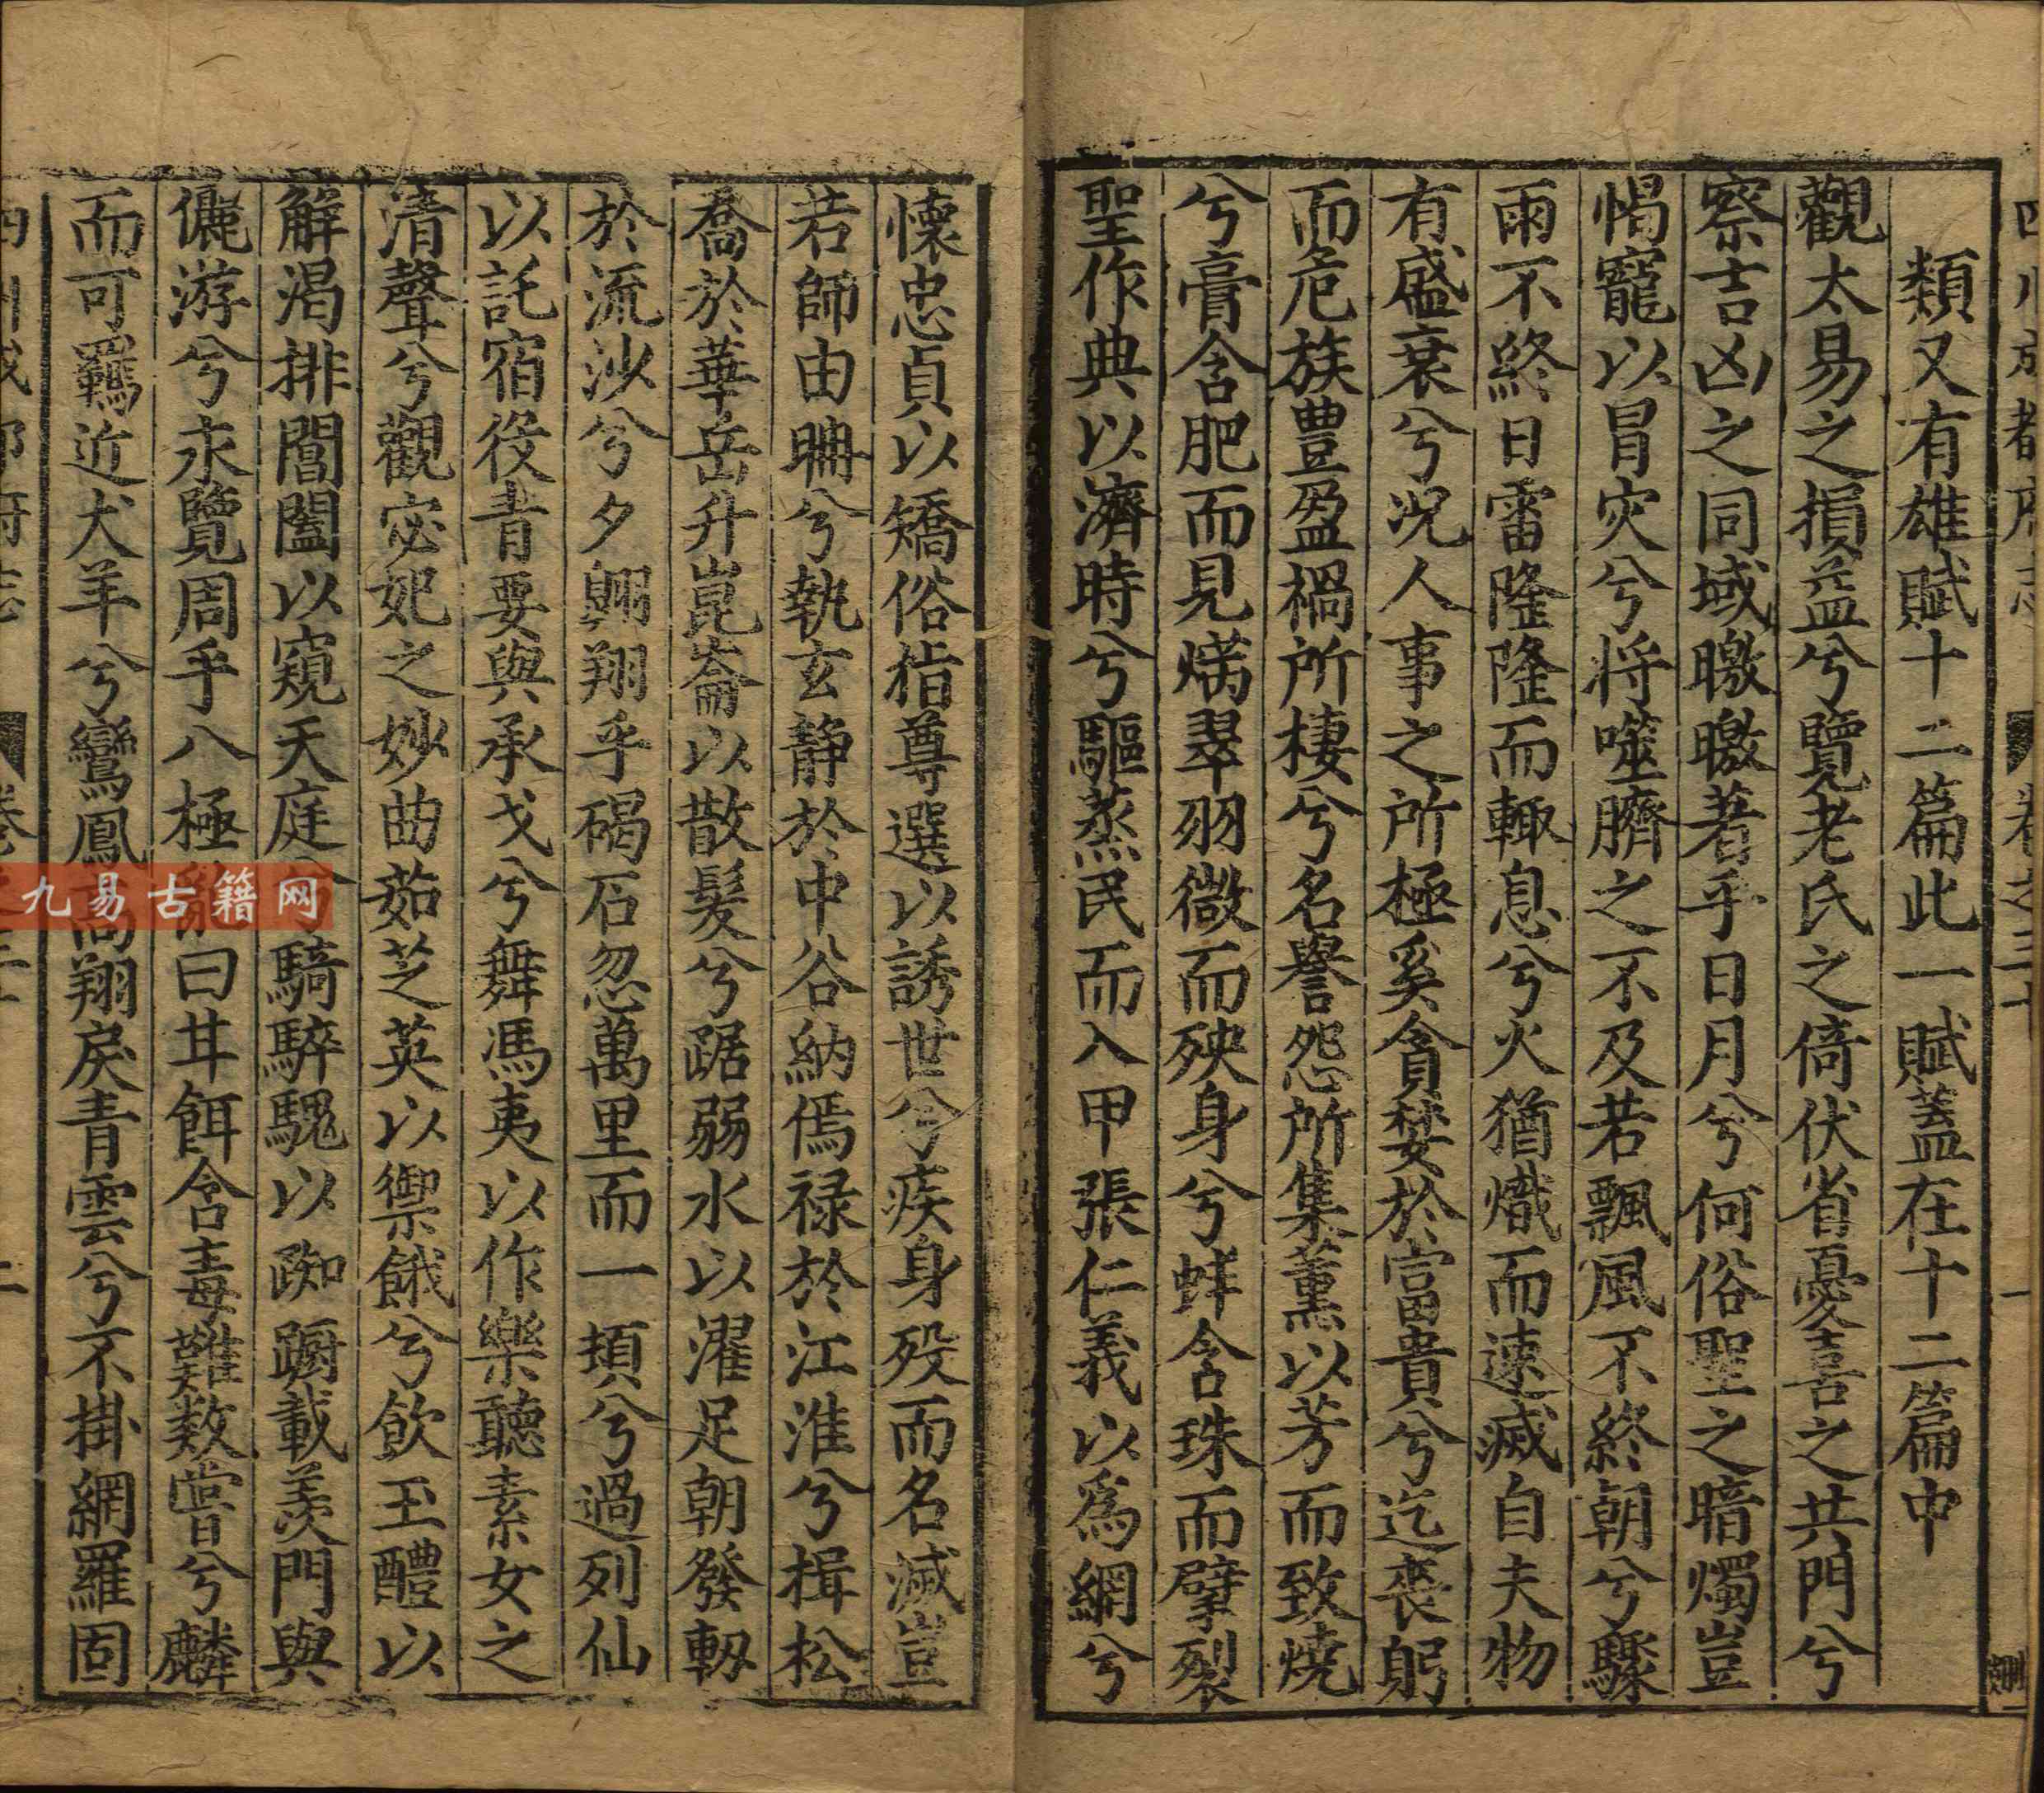 類又有雄賦十二篇此一賦蓋在十二篇中
觀太易之損益兮覽老氏之倚伏省憂喜之共門兮
察吉凶之同域曒曒著乎日月兮何俗聖之暗燭豈
愒寵以冒灾兮将噬臍之不及若飄風不終朝兮驟
雨不終日雷隆隆而輙息兮火猶熾而速滅自夫物
有盛衰兮況人事之所極奚貪婪於富貴兮迄喪躬
而危族豊盈禍所棲兮名譽怨所集薰以芳而致燒
兮膏含肥而見焫翠羽微而殃身兮蚌含珠而擘裂
聖作典以濟時兮驅蒸民而入甲張仁義以爲網兮
懷忠貞以矯俗指尊選以誘世兮疾身歿而名滅豈
若師由聃兮執玄静於中谷納傿禄於江淮兮揖松
喬於華岳升崑崙以散髮兮踞弱水以濯足朝發軔
於流沙兮夕翺翔乎碣石忽萬里而一頓兮過列仙
以託宿役青要與承戈兮舞馮夷以作樂聽素女之
清聲兮觀宓妃之妙曲茹芝英以禦餓兮飲玉醴以
解渴排閶闔以窺天庭兮騎騂騩以踟躕載羨門與
儷游兮永覽周乎八極亂曰甘餌含毒難數嘗兮麟
而可羈近犬羊兮鸞鳳高翔戾青雲兮不掛網羅固
四川成都府志
卷之三十
一
二
九易古籍网